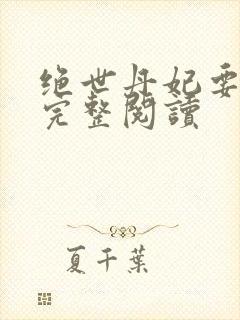 绝世丹妃要
完整閱讀
夏千葉